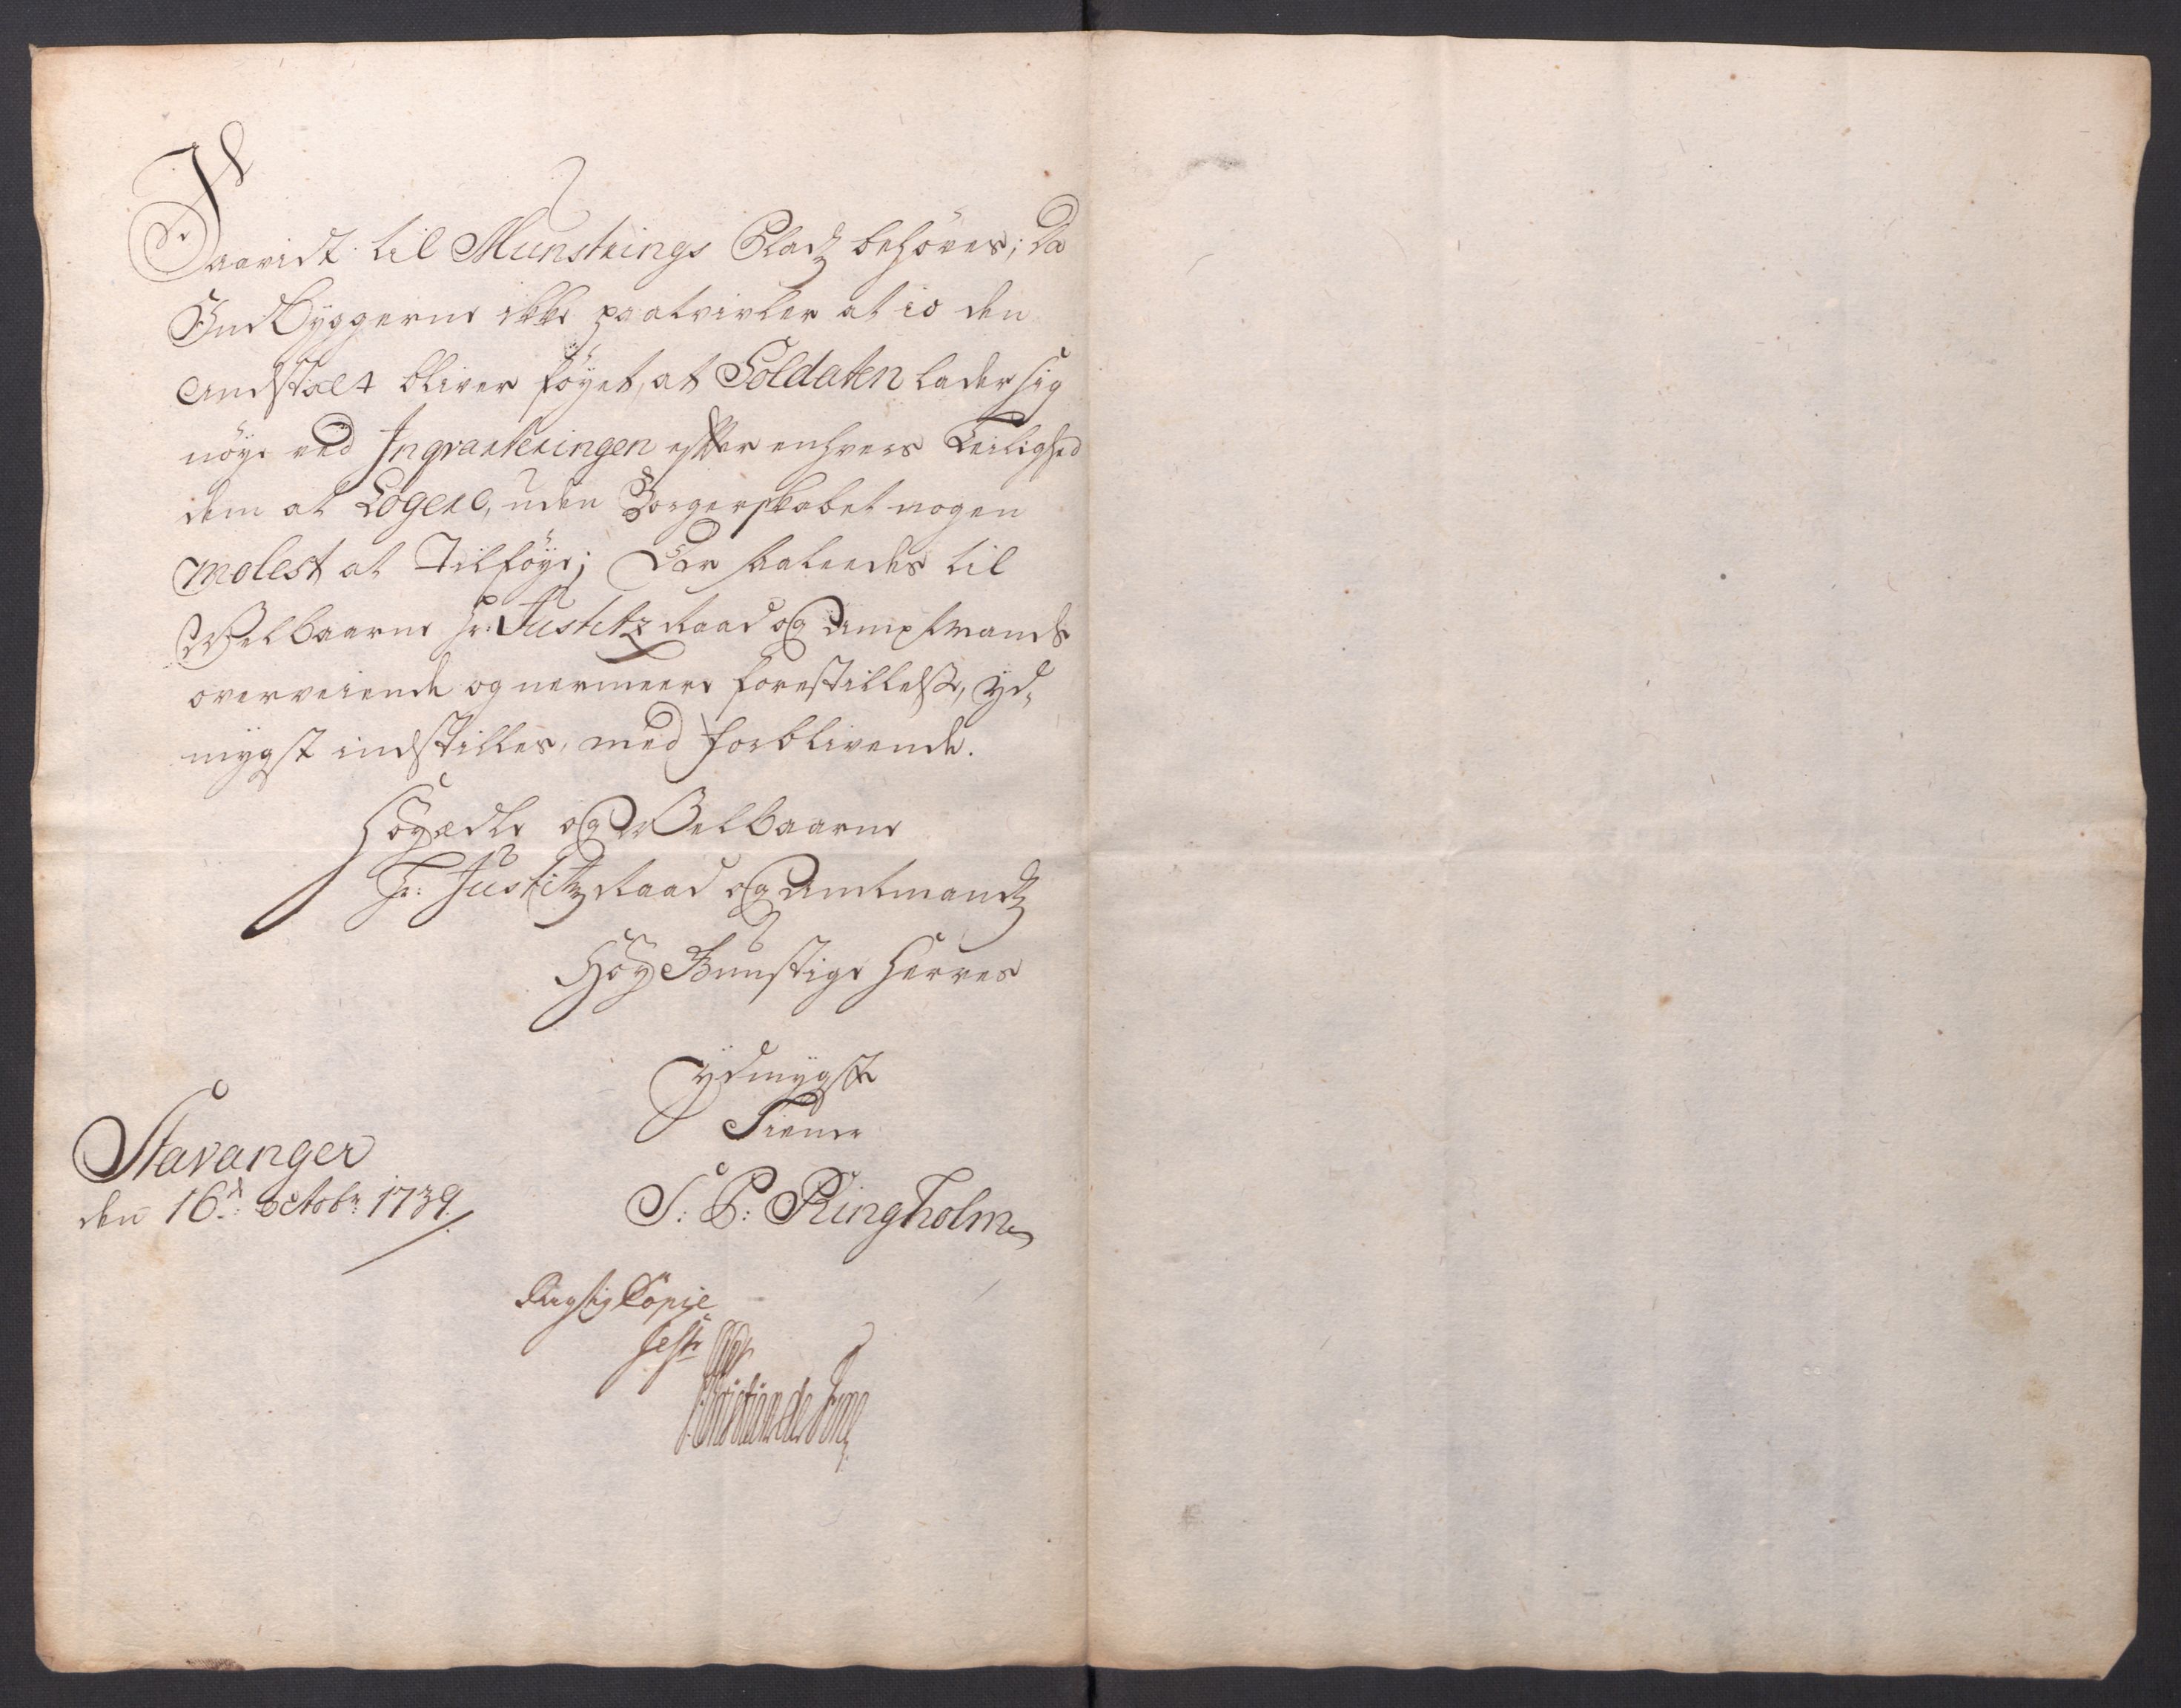 Saavidt til Munstrings Pladz behöves; da
Indbyggerne ikke paatvivler at io den
Andstalt bliver föyet, at Soldaten lader sig
nöye ved Inqvarteringen efter enhvers Leilighed
dem at Logere, uden Borgerskabet nogen
molest at Tilföye; Der saaleedes til
Welbaarne Hr: Justitz Raad og Amptmands
overveiende og nermeere forestillelse, yd„
mygst indstilles, med forblivende.
Höyædle og Welbaarne
Hr: Justitz Raad og Amtmandz
Höy Gunstige Herres
ydmygste
Tiener
Stavanger
den 16.d: octobr: 1739.
S: P: Ringholm
Rigtig Copie
test
Christian de Fine